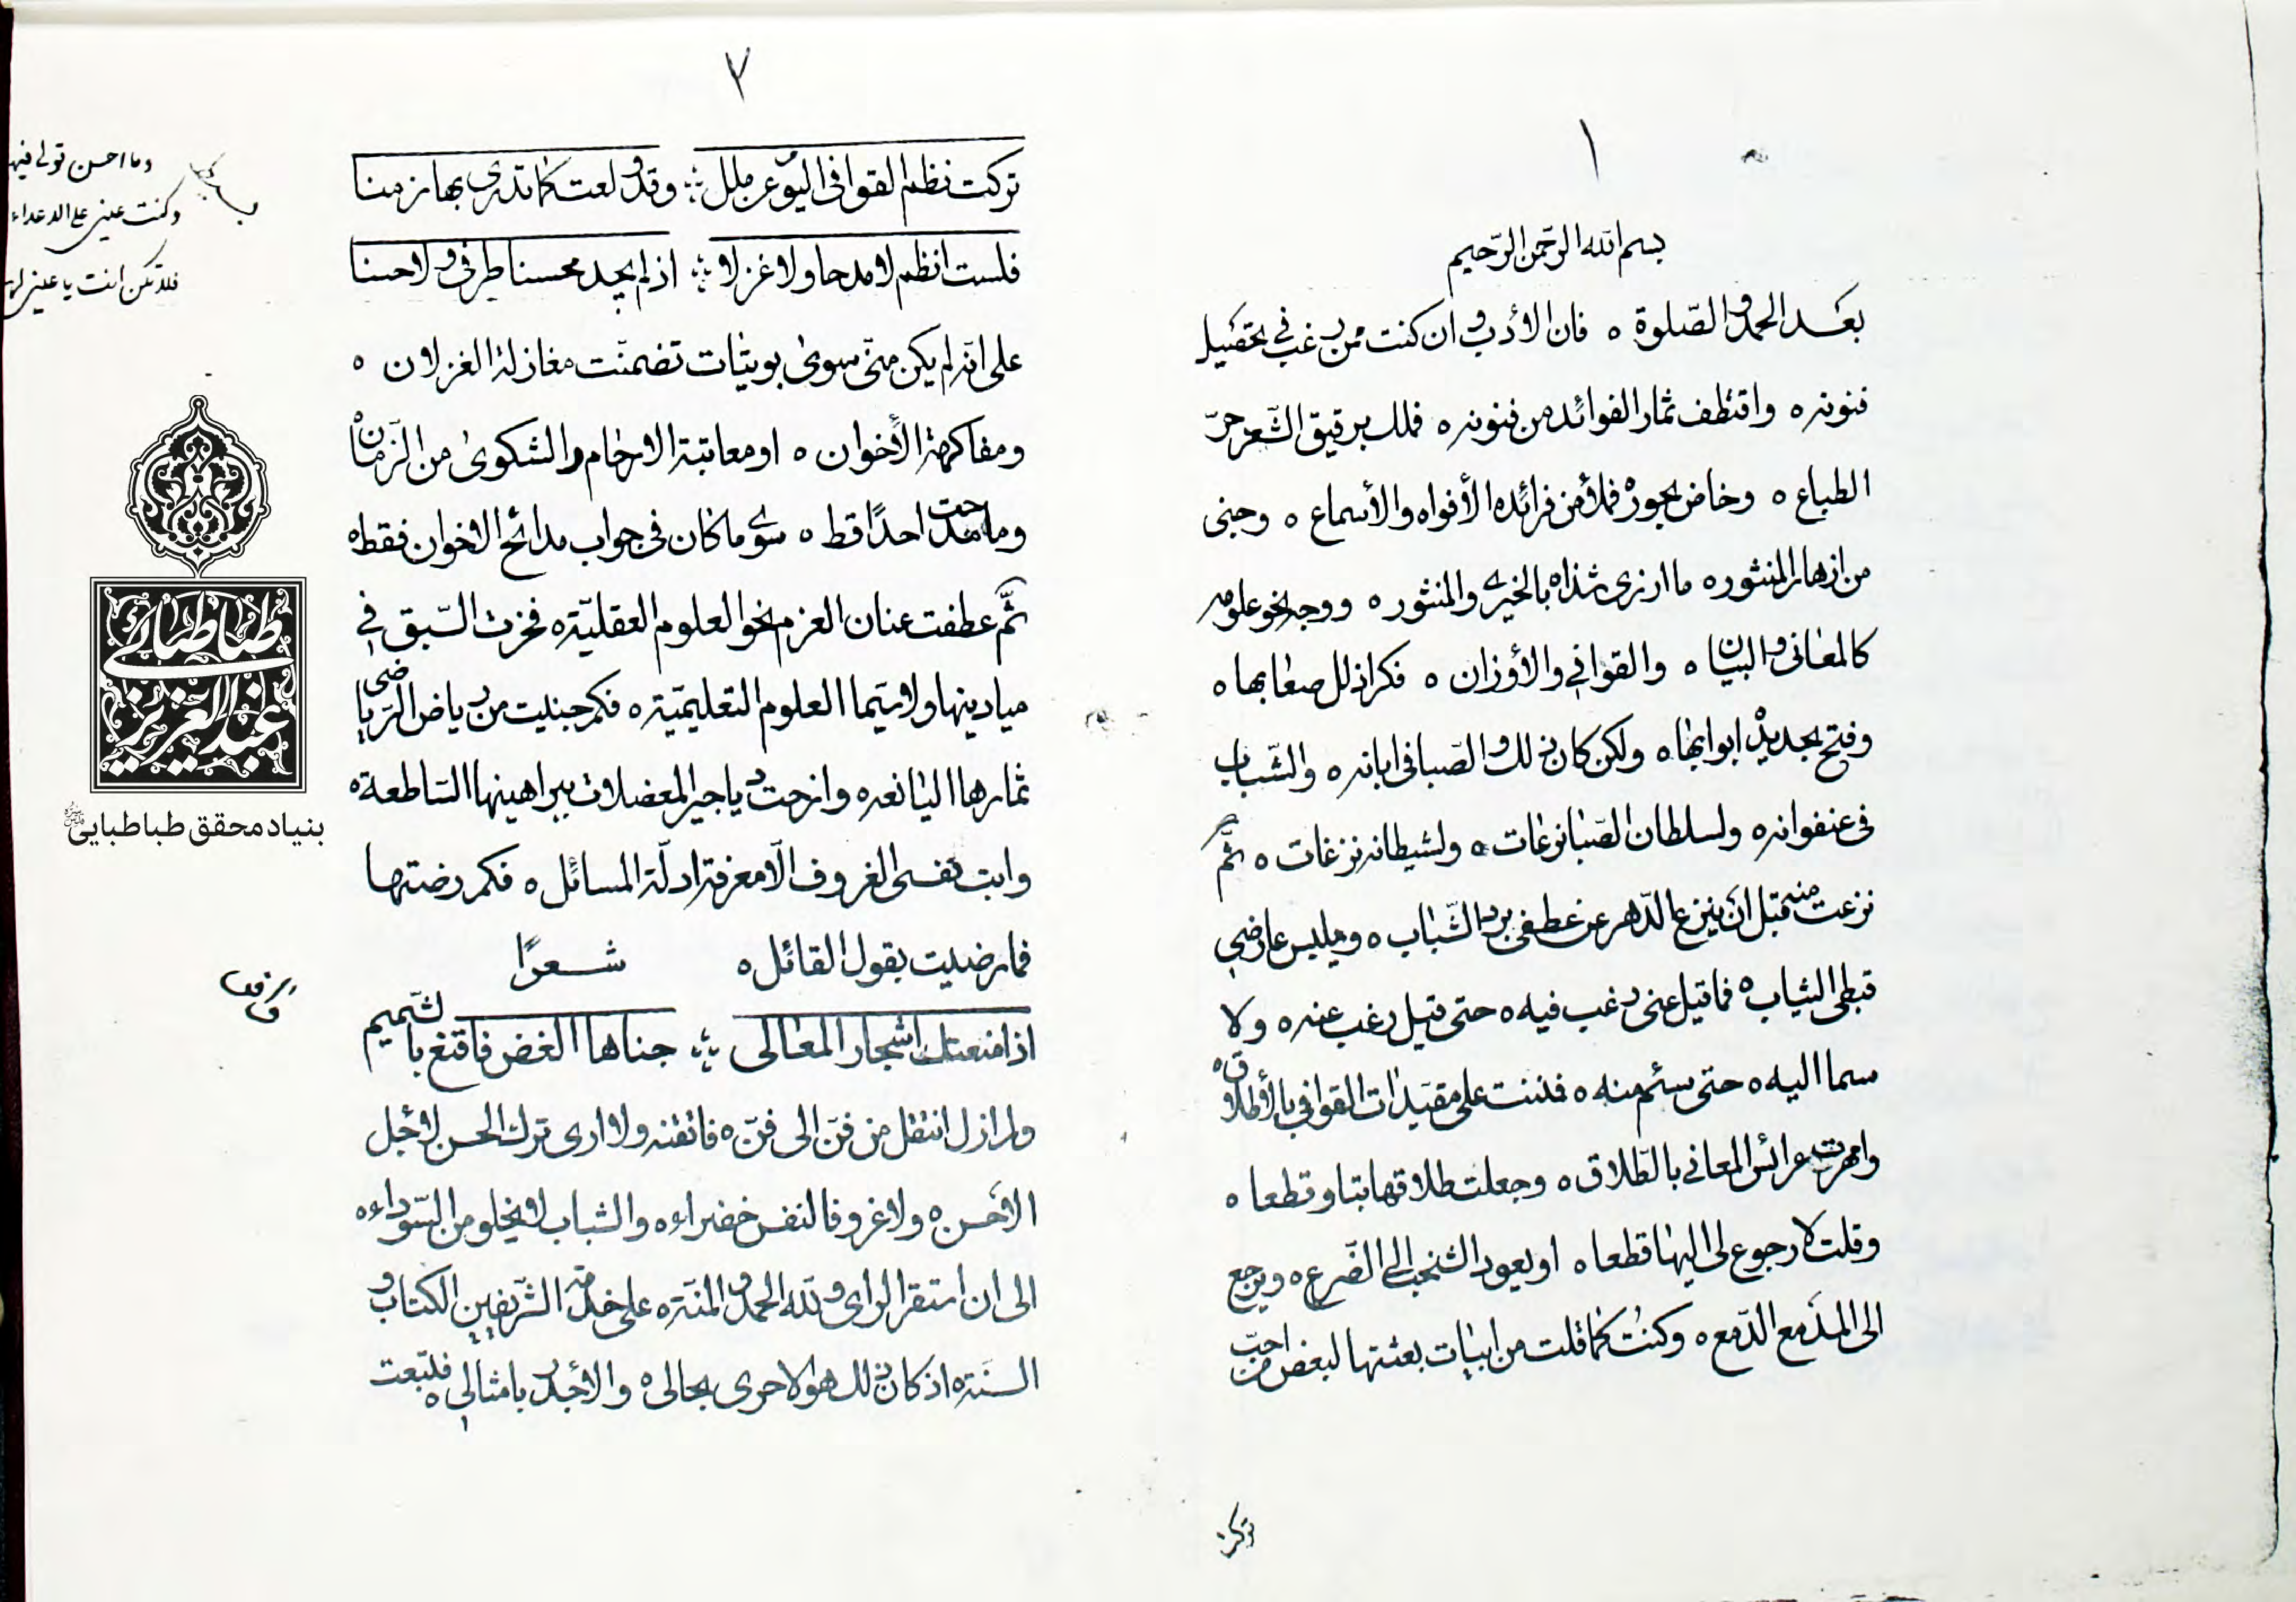 ١
بسم الله الرّحمن الرّحيم
بعد الحمد والصّلوة ٥ فان الأدب وان كنت ممن رغب فى تحصيل
فنونه ٥ واقتطف ثمار الفوائد من فنونه ٥ فملك برقيق الشّعر حرّ
الطباع ٥ وخاض بحوره فملأ من فرائده الأفواه والأسماع ٥ وجنى
من ازهار المنثوره ما ازرى شذاه بالخيرى والمنثور ٥ ووجه نحو علومه
كالمعانى والبيان ٥ والقوافي والأوزان ٥ فكر اذلل صعابها ٥
وفتح بجديده ابوابها ٥ ولكن كان ذلك والصّبا فى ابانه ٥ والشّباب
فى عنفوانه ٥ ولسلطان الصّبا نزعات ٥ ولشيطانه نزغات ٥ ثمّ
نزعت منه قبل ان ينزع الدّهر عن عطفى برد الشّباب ٥ ويلبس عارضي
قبطى الثياب ٥ فما قيل عنى رغب فيه ٥ حتى قيل رغب عنه ٥ ولا
سما اليه ٥ حتى سئم منه ٥ فمننت على مقيدات القوافي بالأطلاق ٥
وامهرت عرائس المعانى بالطّلاق ٥ وجعلت طلاقها بتا وقطعا ٥
وقلت لا رجوع لى اليها قطعا ٥ او يعود الشخب الى الضّرع ٥ ويرجع
الى المدمع الدّمع ٥ وكنت كما قلت من ابيات بعثتها لبعض من احبّ
تركت
٢
تركت نظم القوافى اليوم عن ملل ؛ وقد ولعت كما تدرى بها زمنا
فلست انظم لا مدحا ولا غزلا ؛ اذ لم يجد محسنا طرفى ولا حسنا
على انه لم يكن منّى سوى بويتات تضمنت مغازلة الغزلان ٥
ومفاكهة الأخوان ٥ او معاتبة الارحام والشكوى من الزمان
وما مدحت احدًا قط ٥ سوى ما كان فى جواب مدائح الاخوان فقط ٥
ثمّ عطفت عنان العزم نحو العلوم العقليّة ٥ فحزت السّبق في
ميادينها ولا سيّما العلوم التعليميّة ٥ فكم جنيت من رياض الرياضى
ثمارها اليانعه ٥ وازحت دياجير المعضلات ببراهينها السّاطعة ٥
وابت نفسى الغروف الّا معرفة ادلّة المسائل ٥ فكم رضتها
فما رضيت بقول القائل ٥ شعرًا
اذا منعتك اشجار المعالى ؛ جناها الغض فاقنع بالشّميم
ولم ازل انتقل من فنّ الى فنّ ٥ فاتقنه ولا ارى ترك الحسن لاجل
الاحسن ٥ ولا غرو فالنفس خضراء ٥ والشباب لا يخلو من السّوداء ٥
الى ان استقر الراى ولله الحمد والمنّة ٥ على خدمة الشّريفين الكتاب و
السنة ٥ اذ كان ذلك هو الاحرى بحالى ٥ والأجدر بامثالي ٥ فلتبعت
وما احسن قولى فيها
وكنت عينى على الاعداء
فلا تكن انت يا عينى لها
طباطبائى
عبدالعزيز
بنیاد محقق طباطبایی